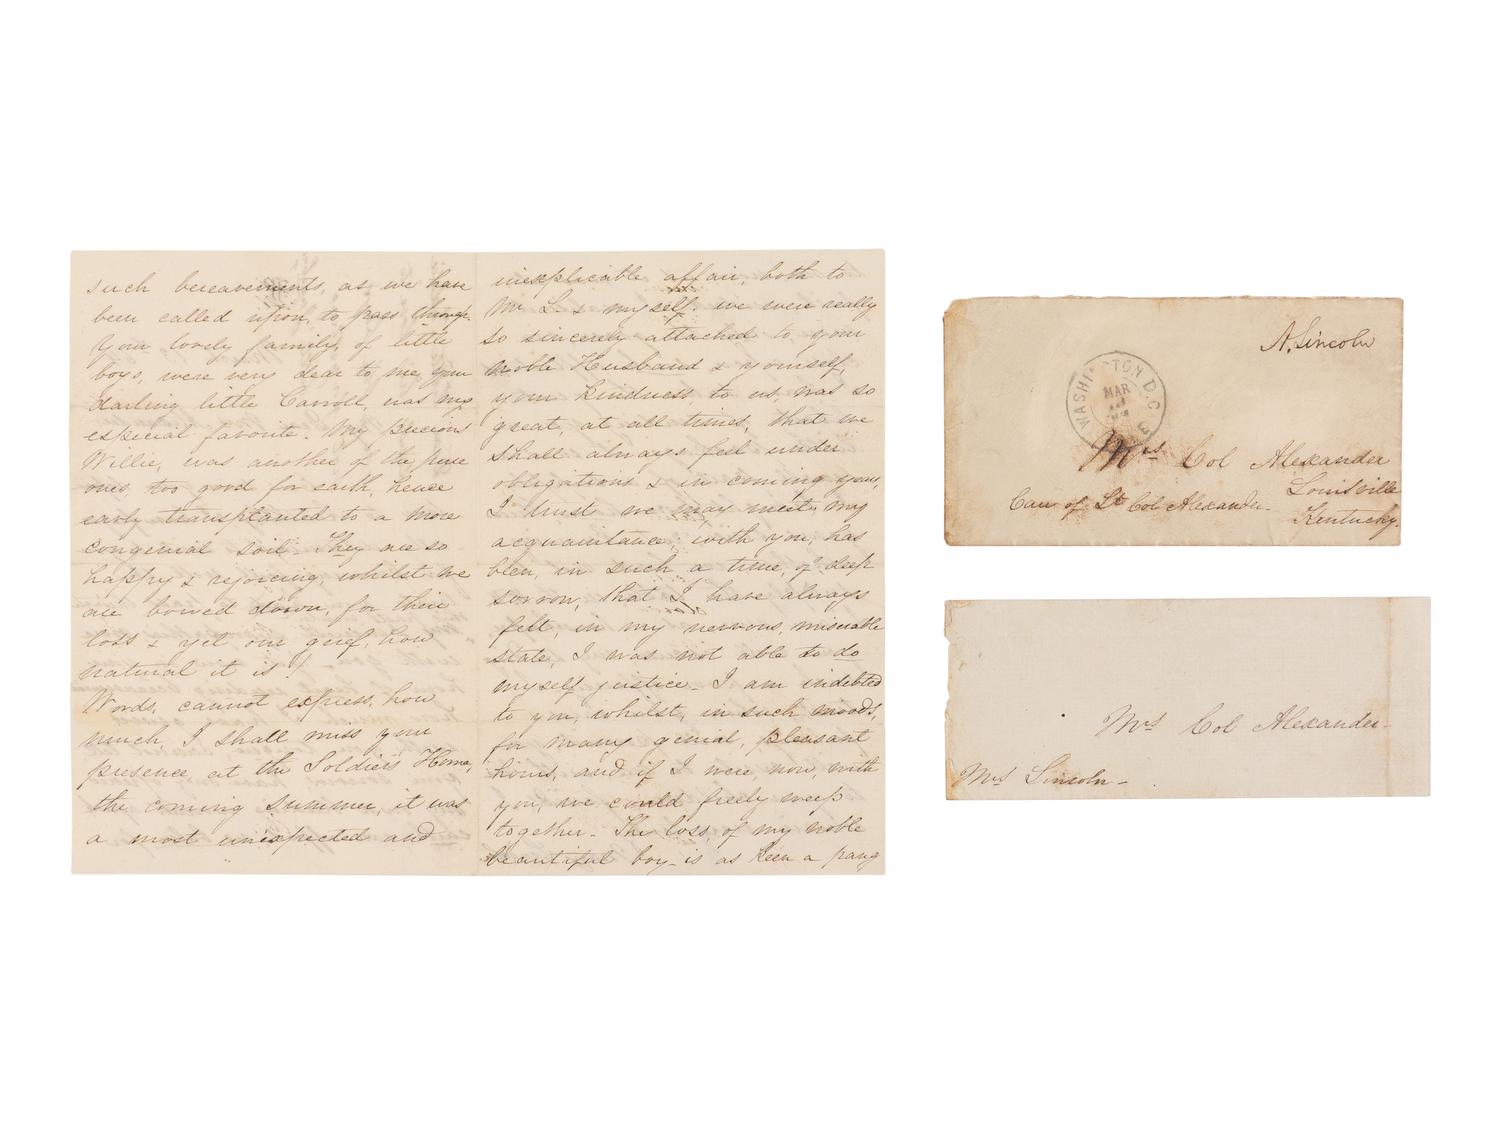 such bereavements, as we have
been called upon, to pass through.
Your lovely family, of little
boys, were very dear to me, your
darling little Carroll, was my
especial favorite. My precious
Willie, was another of the pure
ones, too good for earth, hence
early transplanted to a more
congenial soil. They are so
happy & rejoicing, whilst we
are bowed down, for their
loss & yet our grief, how
natural it is!
Words, cannot express, how
much, I shall miss your
presence, at the Soldier's Home,
the coming summer, it was
a most unexpected and
inexplicable affair, both to
Mr L. & myself. we were really
so sincerely attached to your
noble Husband & yourself,
your kindness, to us, was so
great, at all times, that we
shall always feel under
obligations & in coming years,
I trust we may meet, my
acquaintance, with you, has
been, in such a time, of deep
sorrow, that I have always
felt, in my nervous, miserable
state, I was not able to do
myself justice - I am indebted
to you, whilst, in such moods,
for many genial, pleasant
hours, and if I were, now, with
you, we could freely weep
together - The loss, of my noble
beautiful boy - is as keen a pang
A. Lincoln
WASHINGTON D.C.
MAR
Mrs Col Alexander
Louisville
Care of Lt Col Alexander - Kentucky.
Mrs Col Alexander -
Mrs Lincoln -